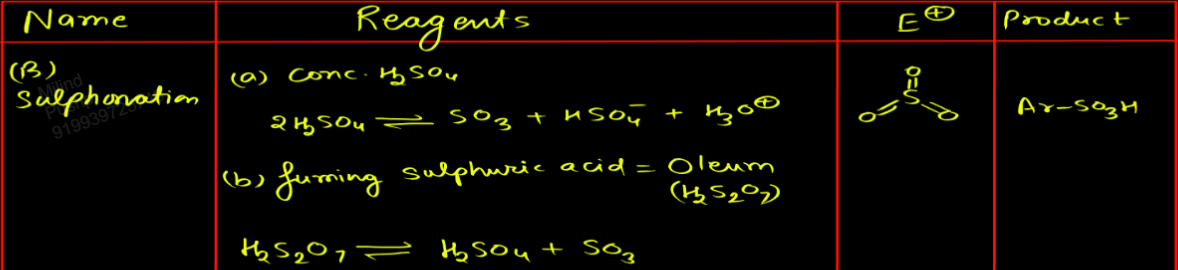 Name Reagents E⊕ Product
(B) Sulphonation
(a) conc. H₂SO₄
2H₂SO₄ ⇌ SO₃ + HSO₄⁻ + H₃O⊕
(b) fuming sulphuric acid = Oleum
(H₂S₂O₇)
H₂S₂O₇ ⇌ H₂SO₄ + SO₃
O
S
O O
Ar-SO₃H
Milind